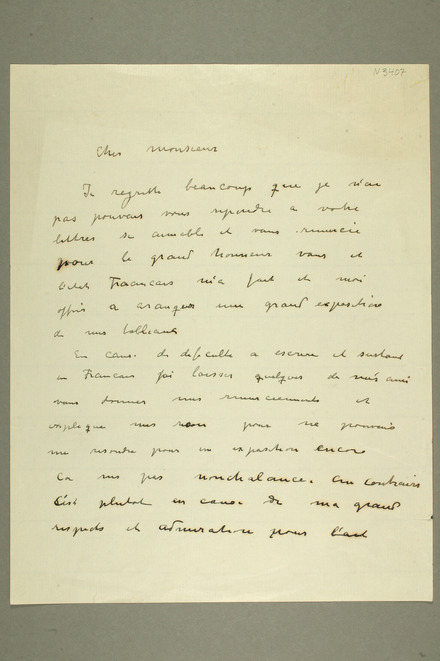 N 3407
Cher monsieur
Je regrette beaucoup que je n'ai
pas pouvais vous repondre a votre
lettres se aimable et vous remercie
pour le grand honneur vous et
Francais m'a fait et moi
offris a aranguer une grand exposition
de mes tableaux
En caus. de difficulte a escrire et surtout
en Francais j'ai laisser quelques de mes ami
vous donner mes remerciements et
explique mes pour ne pouvais
me resoudre pour un exposition encore
Ca nes pas nonchalance. Au contraire
C'est plutot en cause de ma grand
respects et admiration pour l'art